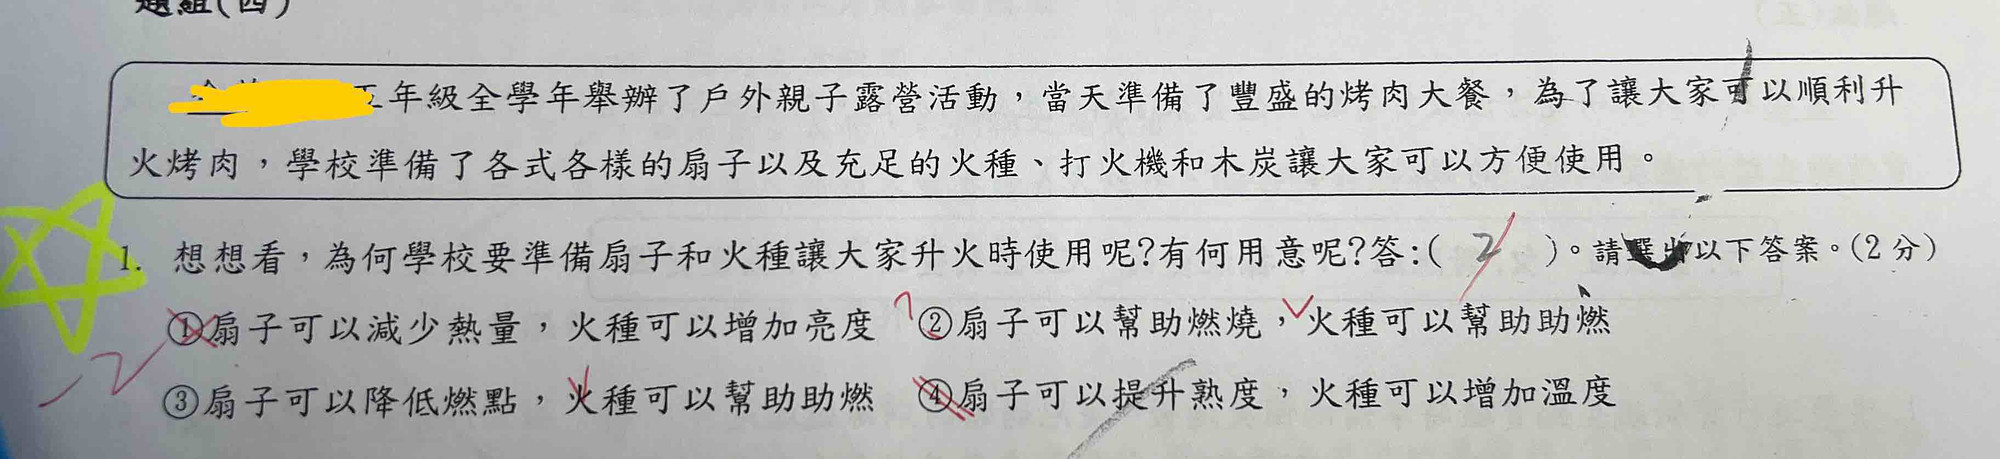 題組(四)
五年級全學年舉辦了戶外親子露營活動，當天準備了豐盛的烤肉大餐，為了讓大家可以順利升
火烤肉，學校準備了各式各樣的扇子以及充足的火種、打火機和木炭讓大家可以方便使用。
1. 想想看，為何學校要準備扇子和火種讓大家升火時使用呢?有何用意呢?答:( 2 )。請選出以下答案。(2分)
①扇子可以減少熱量，火種可以增加亮度 ②扇子可以幫助燃燒，火種可以幫助助燃
③扇子可以降低燃點，火種可以幫助助燃 ④扇子可以提升熟度，火種可以增加溫度